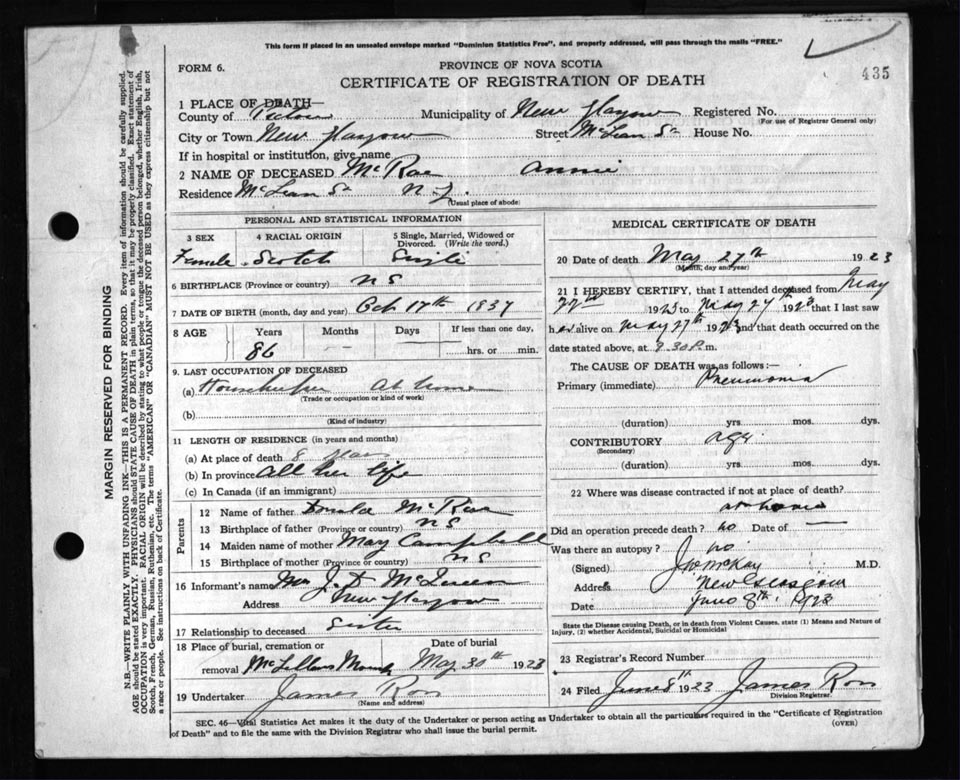 This form if placed in an unsealed envelope marked "Dominion Statistics Free", and properly addressed, will pass through the mails "FREE."
FORM 6.
PROVINCE OF NOVA SCOTIA
435
CERTIFICATE OF REGISTRATION OF DEATH
1 PLACE OF DEATH—
County of Pictou Municipality of New Glasgow Registered No.
(For use of Registrar General only)
City or Town New Glasgow Street McLean St House No.
If in hospital or institution, give name
2 NAME OF DECEASED McRae Annie
Residence McLean St N. G.
(Usual place of abode)
PERSONAL AND STATISTICAL INFORMATION
3 SEX 4 RACIAL ORIGIN 5 Single, Married, Widowed or Divorced. (Write the word.)
Female Scotch Single
6 BIRTHPLACE (Province or country) N S
7 DATE OF BIRTH (month, day and year) Oct 17th 1837
8 AGE Years Months Days If less than one day,
86 hrs. or min.
9. LAST OCCUPATION OF DECEASED
(a) Housekeeper At home
(Trade or occupation or kind of work)
(b)
(Kind of industry)
11 LENGTH OF RESIDENCE (in years and months)
(a) At place of death 8 years
(b) In province all her life
(c) In Canada (if an immigrant)
Parents
12 Name of father Donald McRae
13 Birthplace of father (Province or country) N S
14 Maiden name of mother Mary Campbell
15 Birthplace of mother (Province or country) N S
16 Informant's name Mrs J. D.
Address New Glasgow
17 Relationship to deceased Sister
18 Place of burial, cremation or Date of burial
removal McLellans Mount May 30th 1923
19 Undertaker James Ross
(Name and address)
MEDICAL CERTIFICATE OF DEATH
20 Date of death May 27th 1923
(Month, day and year)
21 I HEREBY CERTIFY, that I attended deceased from May
22nd 1923 to May 27th 1923 that I last saw
her alive on May 27th 1923 and that death occurred on
the date stated above, at 9.30 P.m.
The CAUSE OF DEATH was as follows:—
Primary (immediate) Pneumonia
(duration) yrs. mos. dys.
CONTRIBUTORY age
(Secondary)
(duration) yrs. mos. dys.
22 Where was disease contracted if not at place of death?
at home
Did an operation precede death? no Date of —
Was there an autopsy? no
(Signed) J W McKay M.D.
Address New Glasgow
Date June 8th. 1923
State the Disease causing Death, or in death from Violent Causes, state (1) Means and Nature of Injury, (2) whether Accidental, Suicidal or Homicidal
23 Registrar's Record Number
24 Filed June 8th 1923 James Ross
Division Registrar.
SEC. 46—Vital Statistics Act makes it the duty of the Undertaker or person acting as Undertaker to obtain all the particulars required in the "Certificate of Registration
of Death" and to file the same with the Division Registrar who shall issue the burial permit.
(OVER)
MARGIN RESERVED FOR BINDING
N.B.—WRITE PLAINLY WITH UNFADING INK—THIS IS A PERMANENT RECORD. Every item of information should be carefully supplied.
AGE should be stated EXACTLY. PHYSICIANS should STATE CAUSE OF DEATH in plain terms, so that it may be properly classified. Exact statement of
OCCUPATION is very important. RACIAL ORIGIN will be described by stating to what people or tongue the deceased person belonged, whether English, Irish,
Scotch, French, German, Russian, Ruthenian, etc. The terms "AMERICAN" OR "CANADIAN" MUST NOT BE USED as they express citizenship but not
a race or people. See instructions on back of Certificate.